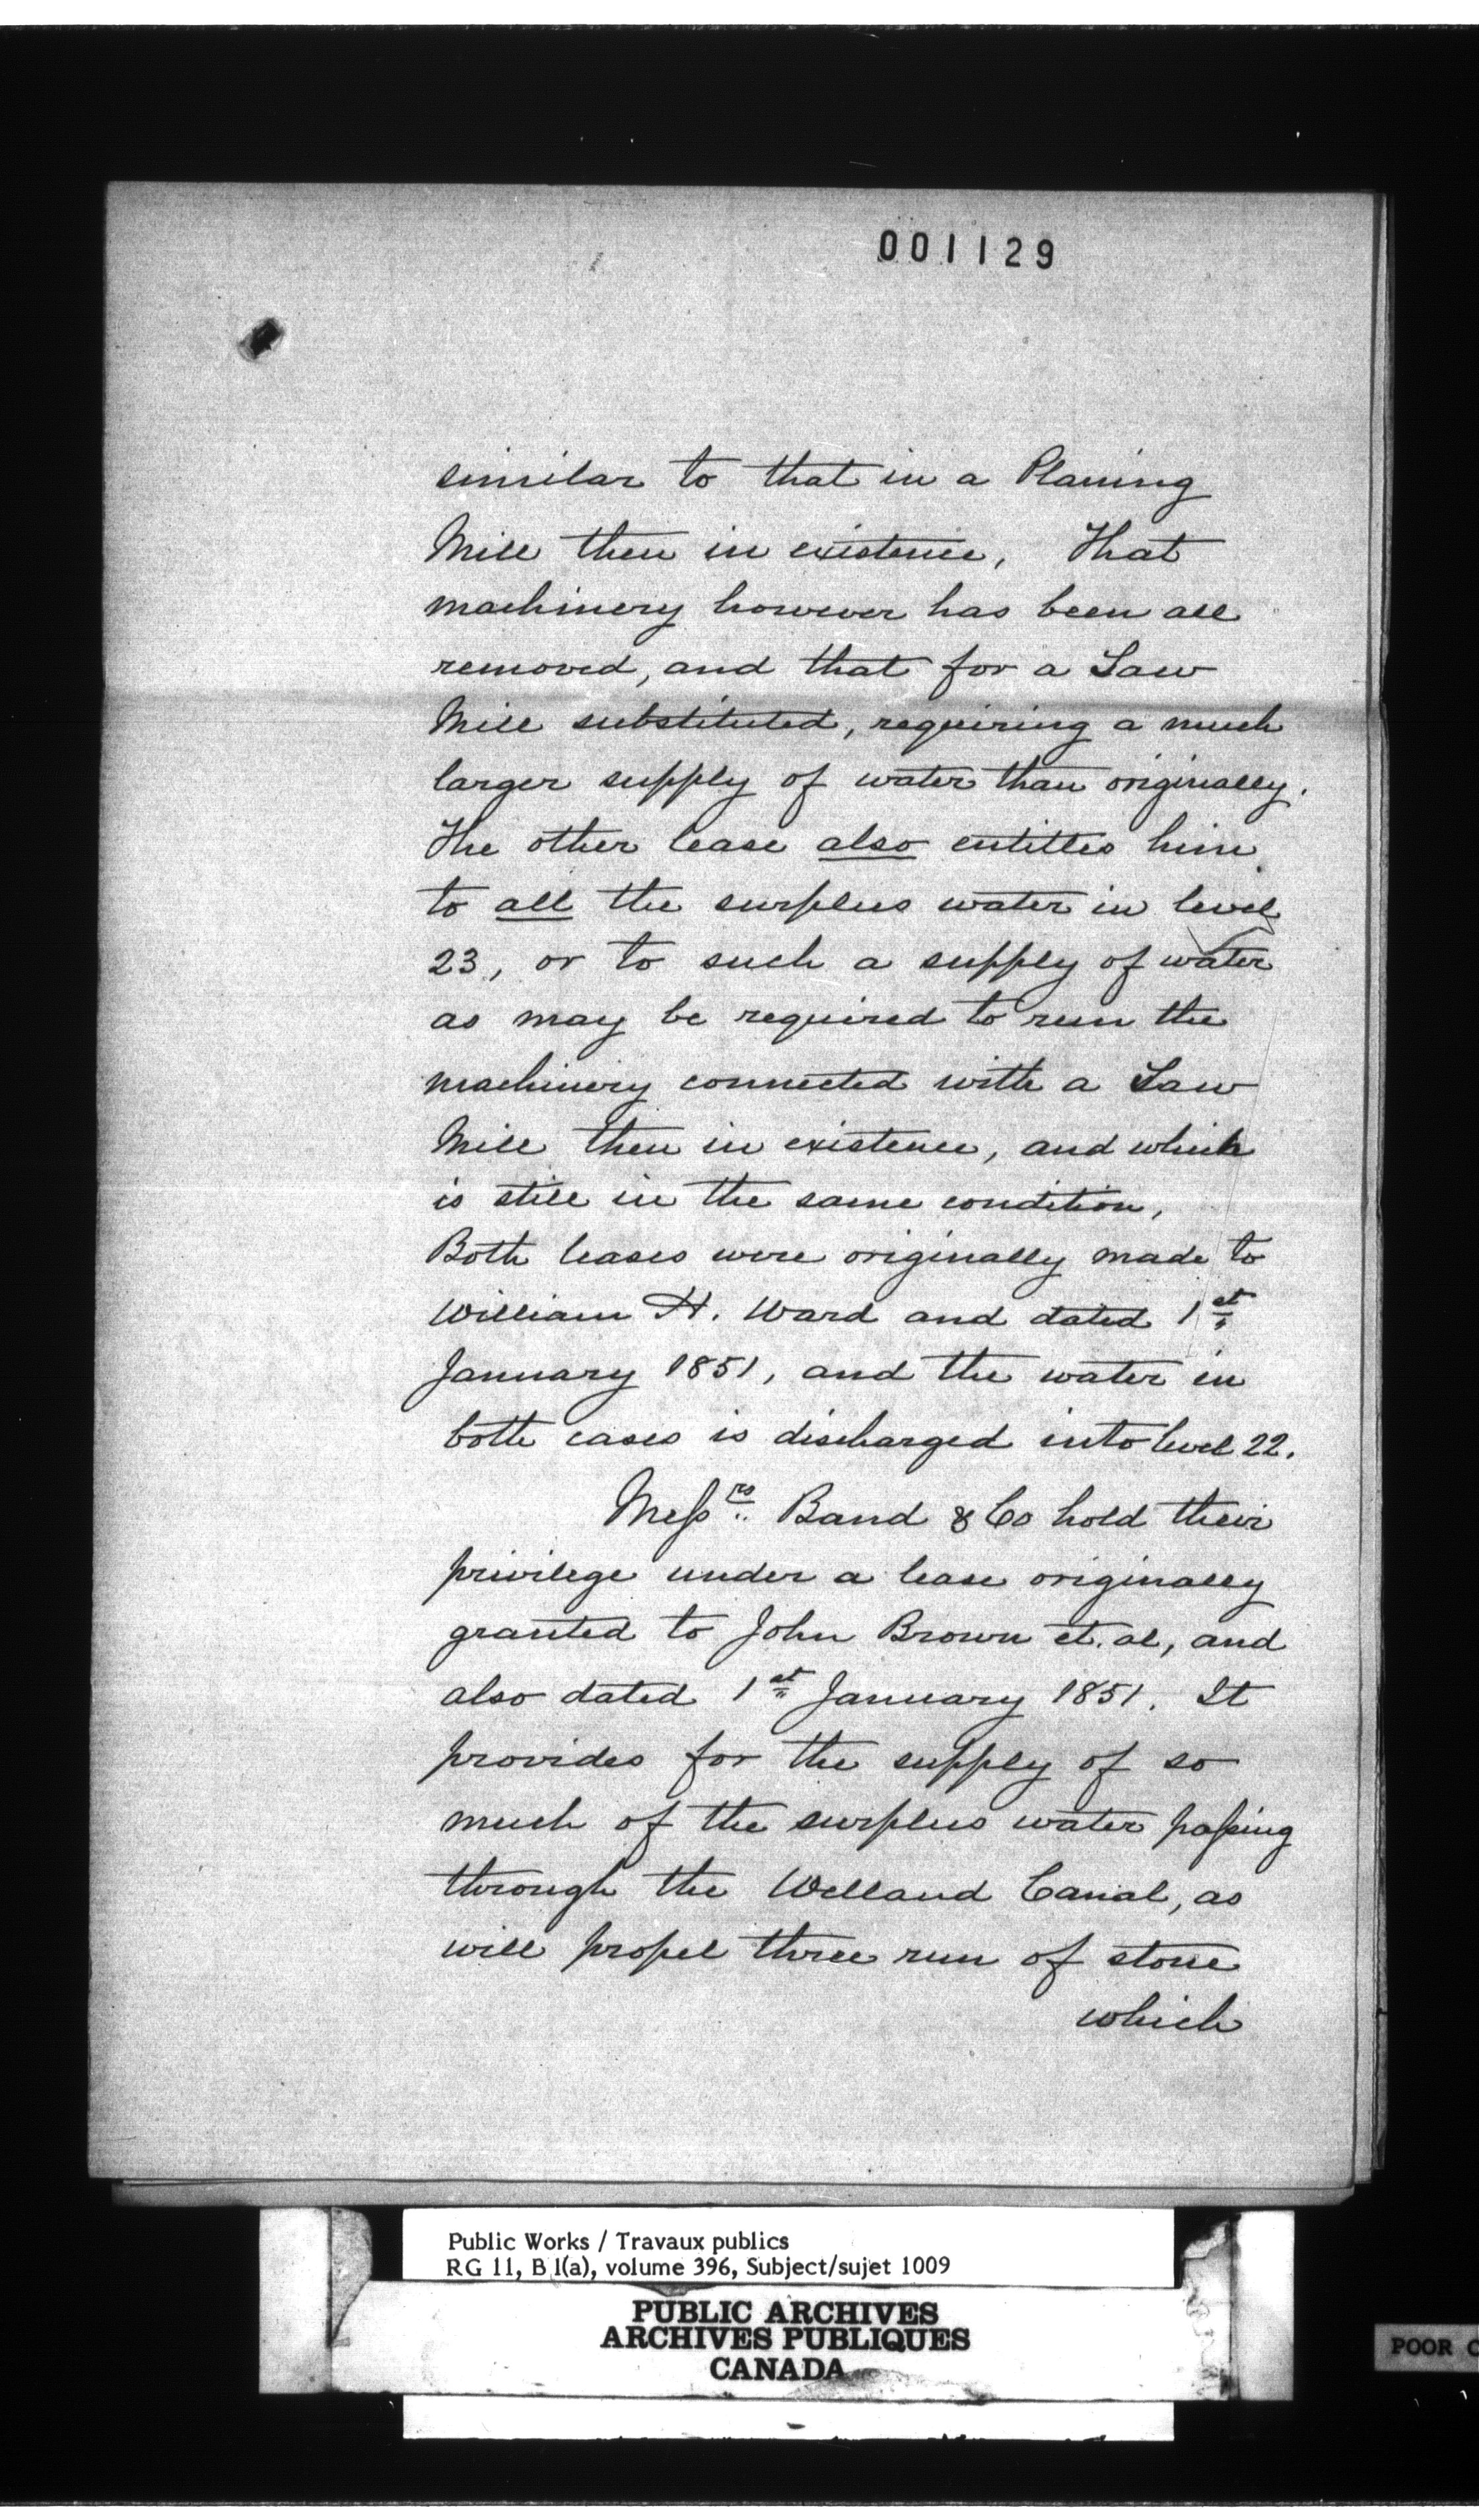 001129
similar to that in a Planing
Mill then in existence, That
machinery however has been all
removed, and that for a Saw
Mill substituted, requiring a much
larger supply of water than originally.
The other lease also entitles him
to all the surplus water in level
23, or to such a supply of water
as may be required to run the
machinery connected with a Saw
Mill then in existence, and which
is still in the same condition,
Both leases were originally made to
William H. Ward and dated 1st
January 1851, and the water in
both cases is discharged into level 22.
Messrs Band & Co hold their
privilege under a lease originally
granted to John Brown et. al, and
also dated 1st January 1851. It
provides for the supply of so
much of the surplus water passing
through the Welland Canal, as
will propel three run of stone
which
Public Works / Travaux publics
RG 11, B 1(a), volume 396, Subject/sujet 1009
PUBLIC ARCHIVES
ARCHIVES PUBLIQUES
CANADA
POOR C